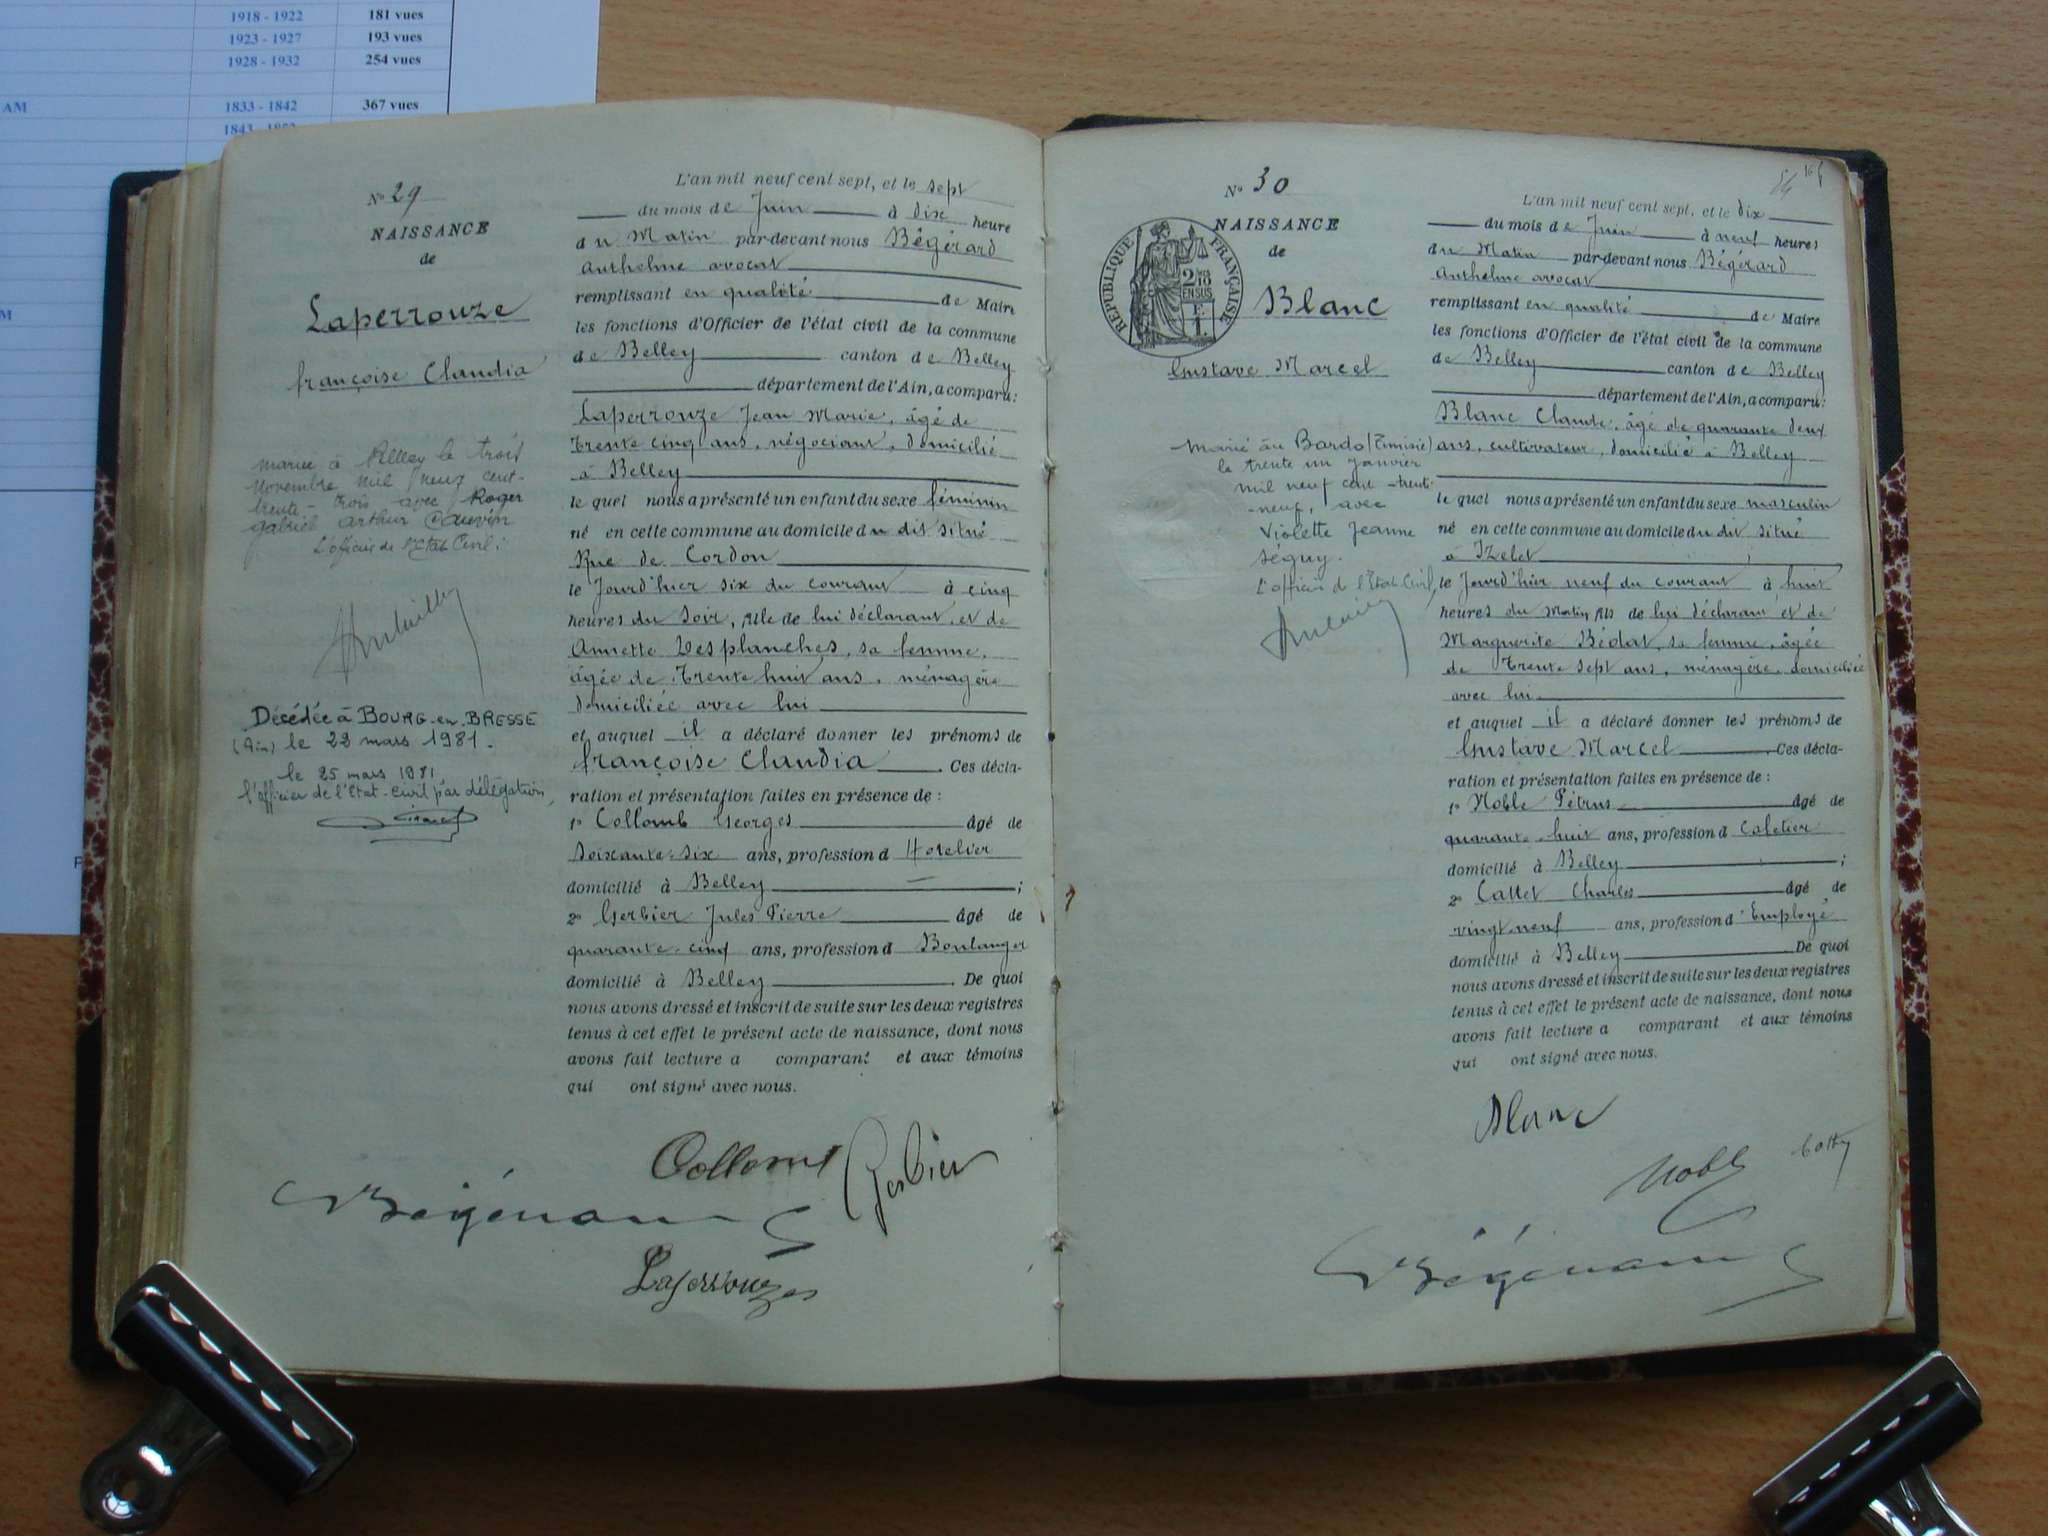 1918 - 1922 181 vues
1923 - 1927 193 vues
1928 - 1932 254 vues
AM 1833 - 1842 367 vues
M
P
N° 29
NAISSANCE
de
Laperrouze
françoise Claudia
mariée à Belley le trois
novembre mil neuf cent-
trente-trois avec Roger
gabriel arthur
L'officier de l'Etat Civil :
Décédée à BOURG-en-BRESSE
(Ain) le 22 mars 1981.
le 25 mars 1981
l'officier de l'Etat-Civil par délégation,
L'an mil neuf cent sept, et le sept
du mois de Juin à dix heure
du Matin par-devant nous Bégérard
Anthelme avocat
remplissant en qualité de Maire
les fonctions d'Officier de l'état civil de la commune
de Belley canton de Belley
département de l'Ain, a comparu :
Laperrouze Jean Marie, âgé de
trente cinq ans, négociant, domicilié
à Belley
lequel nous a présenté un enfant du sexe féminin
né en cette commune au domicile du dit situé
Rue de Cordon
le Jourd'hier six du courant à cinq
heures du Soir, fille de lui déclarant, et de
Annette Desplanches, sa femme,
âgée de Trente huit ans, ménagère
domiciliée avec lui
et auquel il a déclaré donner les prénoms de
françoise Claudia Ces décla-
ration et présentation faites en présence de :
1° Collomb Georges âgé de
Soixante-six ans, profession d Hotelier
domicilié à Belley ;
2° Gerbier Jules Pierre âgé de
quarante-cinq ans, profession d Boulanger
domicilié à Belley . De quoi
nous avons dressé et inscrit de suite sur les deux registres
tenus à cet effet le présent acte de naissance, dont nous
avons fait lecture a comparant et aux témoins
qui ont signé avec nous.
Collomb Gerbier
Bégérard
Laperrouze
N° 30
NAISSANCE
de
RÉPUBLIQUE FRANÇAISE
2/10
EN SUS
Blanc
Gustave Marcel
Marié au Bardo (Tunisie)
le trente un janvier
mil neuf cent-trente-
neuf, avec
Violette Jeanne
Séguy.
l'officier de l'Etat Civil,
L'an mil neuf cent sept, et le dix
du mois de Juin à neuf heures
du Matin par-devant nous Bégérard
Anthelme avocat
remplissant en qualité de Maire
les fonctions d'Officier de l'état civil de la commune
de Belley canton de Belley
département de l'Ain, a comparu :
Blanc Claude, âgé de quarante deux
ans, cultivateur, domicilié à Belley
lequel nous a présenté un enfant du sexe masculin
né en cette commune au domicile du dit situé
à Izelet
le Jourd'hier neuf du courant à huit
heures du Matin, fils de lui déclarant et de
Marguerite Bédat, sa femme, âgée
de Trente sept ans, ménagère, domiciliée
avec lui
et auquel il a déclaré donner les prénoms de
Gustave Marcel Ces décla-
ration et présentation faites en présence de :
1° Noble Pétrus âgé de
quarante-huit ans, profession d Cafetier
domicilié à Belley ;
2° Cattet Charles âgé de
vingt-neuf ans, profession d'Employé
domicilié à Belley De quoi
nous avons dressé et inscrit de suite sur les deux registres
tenus à cet effet le présent acte de naissance, dont nous
avons fait lecture a comparant et aux témoins
qui ont signé avec nous.
Blanc
Noble
Bégérard